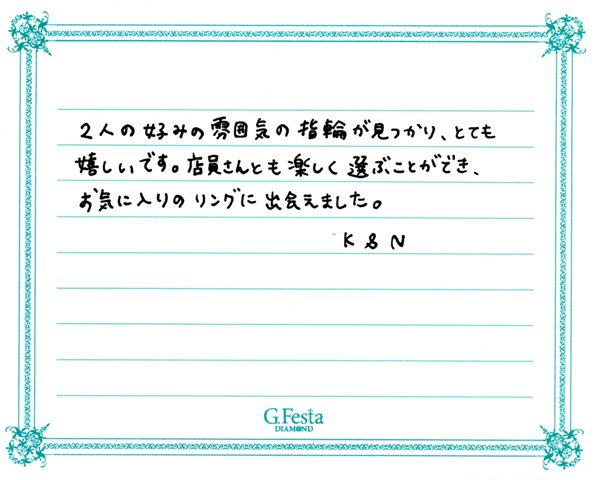 2人の好みの雰囲気の指輪が見つかり、とても
嬉しいです。店員さんとも楽しく選ぶことができ、
お気に入りのリングに出会えました。
K & N
G.Festa
DIAMOND